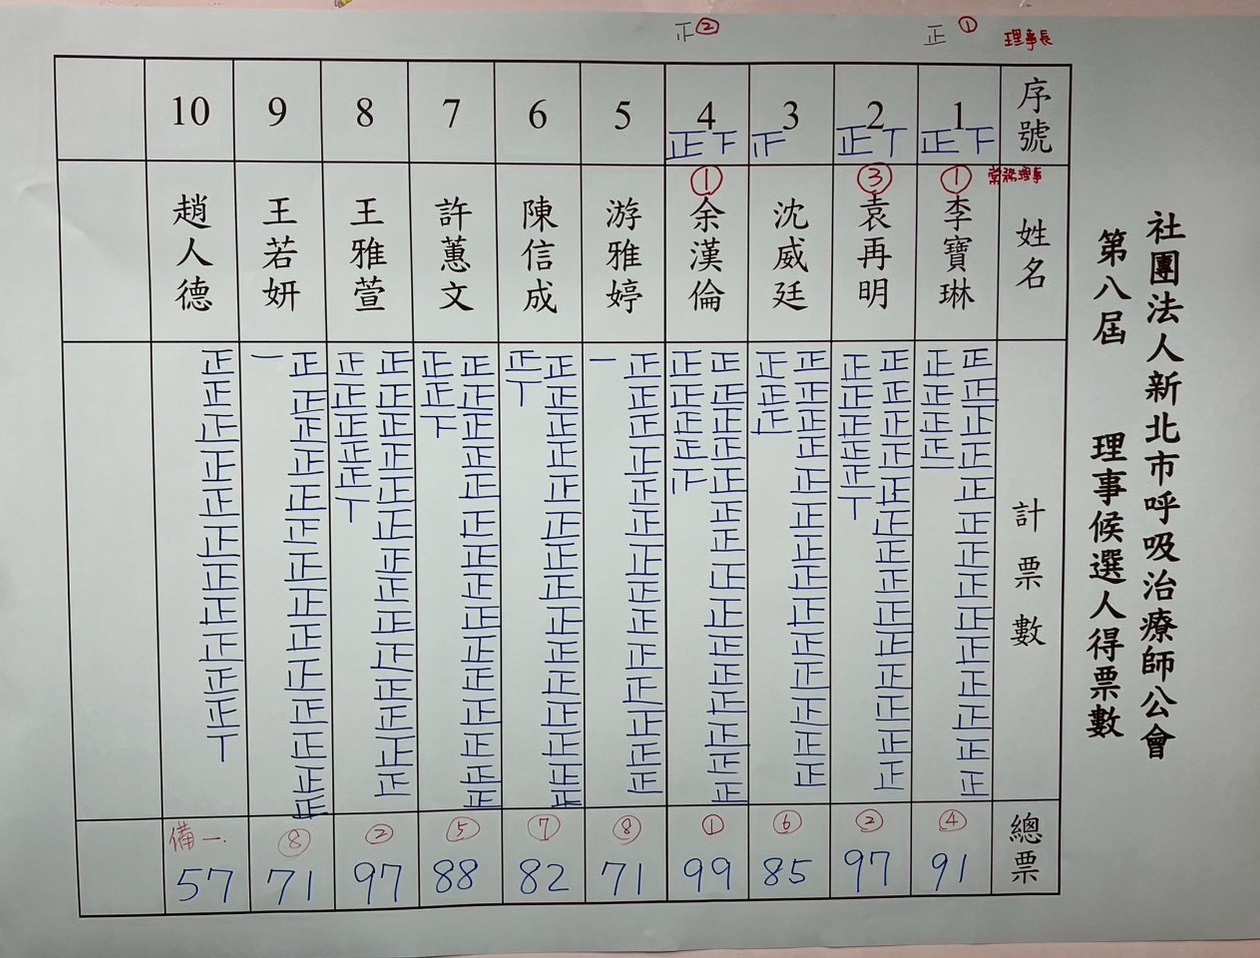 社團法人新北市呼吸治療師公會
第八屆 理事候選人得票數
理事長
正 ①
正 ②
序號
姓名
計票數
總票
常務理事
1
正下
①
李寶琳
正正正正正正正正正正正正正正
正正正正一
④
91
2
正丅
③
袁再明
正正正正正正正正正正正正正正
正正正正正丅
②
97
3
沈威廷
正正正正正正正正正正正正正正
正正正
⑥
85
4
正下
①
余漢倫
正正正正正正正正正正正正正正正
正正正正
①
99
5
游雅婷
正正正正正正正正正正正正正正
一
⑧
71
6
陳信成
正正正正正正正正正正正正正正正
正丅
⑦
82
7
許蕙文
正正正正正正正正正正正正正正正
正正下
⑤
88
8
王雅萱
正正正正正正正正正正正正正正
正正正正正丅
②
97
9
王若妍
正正正正正正正正正正正正正正
一
⑧
71
10
趙人德
正正正正正正正正正正正丅
備一.
57